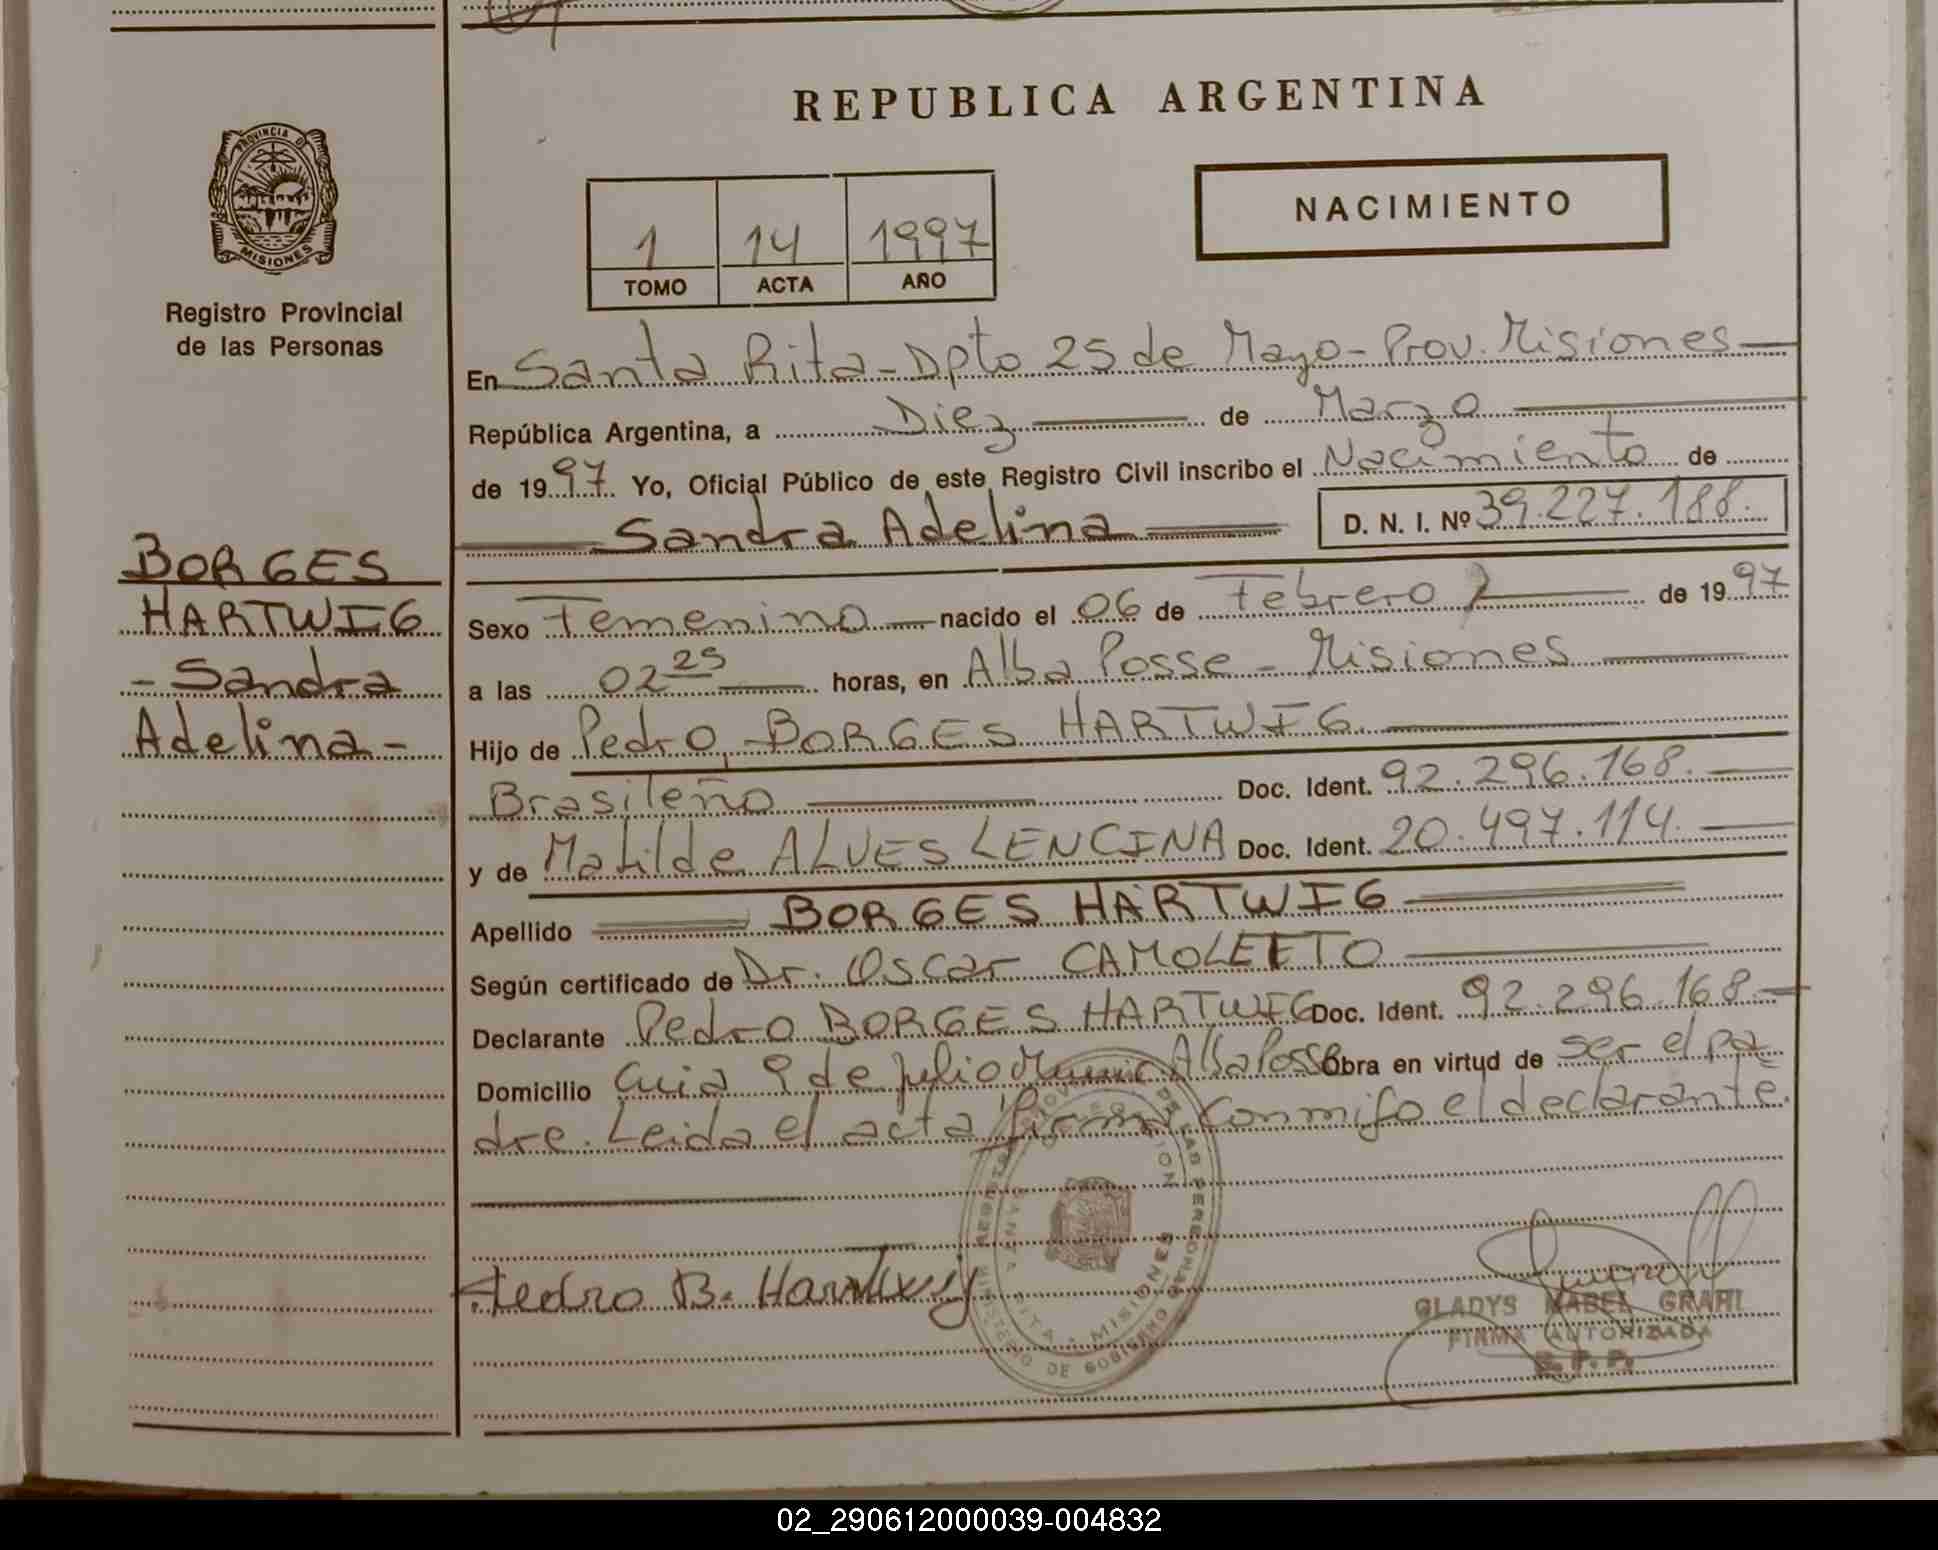 REPUBLICA ARGENTINA
PROVINCIA DE
MISIONES
Registro Provincial
de las Personas
NACIMIENTO
1 14 1997
TOMO ACTA AÑO
En Santa Rita - Dpto 25 de Mayo - Prov. Misiones
República Argentina, a Diez de Marzo
de 1997 Yo, Oficial Público de este Registro Civil inscribo el Nacimiento de
Sandra Adelina D. N. I. Nº 39.227.188.
BORGES
HARTWIG
- Sandra
Adelina -
Sexo Femenino nacido el 06 de Febrero de 1997
a las 02 25 horas, en Alba Posse - Misiones
Hijo de Pedro BORGES HARTWIG
Brasileño Doc. Ident. 92.296.168.
y de Matilde ALVES LENCINA Doc. Ident. 20.497.114.
Apellido BORGES HARTWIG
Según certificado de Dr. Oscar CAMOLETTO
Declarante Pedro BORGES HARTWIG Doc. Ident. 92.296.168.
Domicilio 9 de Julio Alba Posse Obra en virtud de ser el pa
dre. Leida el acta, firma conmigo el declarante.
Pedro B. Hartwig
SANTA RITA - MISIONES
MINISTERIO DE GOBIERNO
GLADYS MABEL GRAHL
FIRMA AUTORIZADA
R. P. P.
02_290612000039-004832